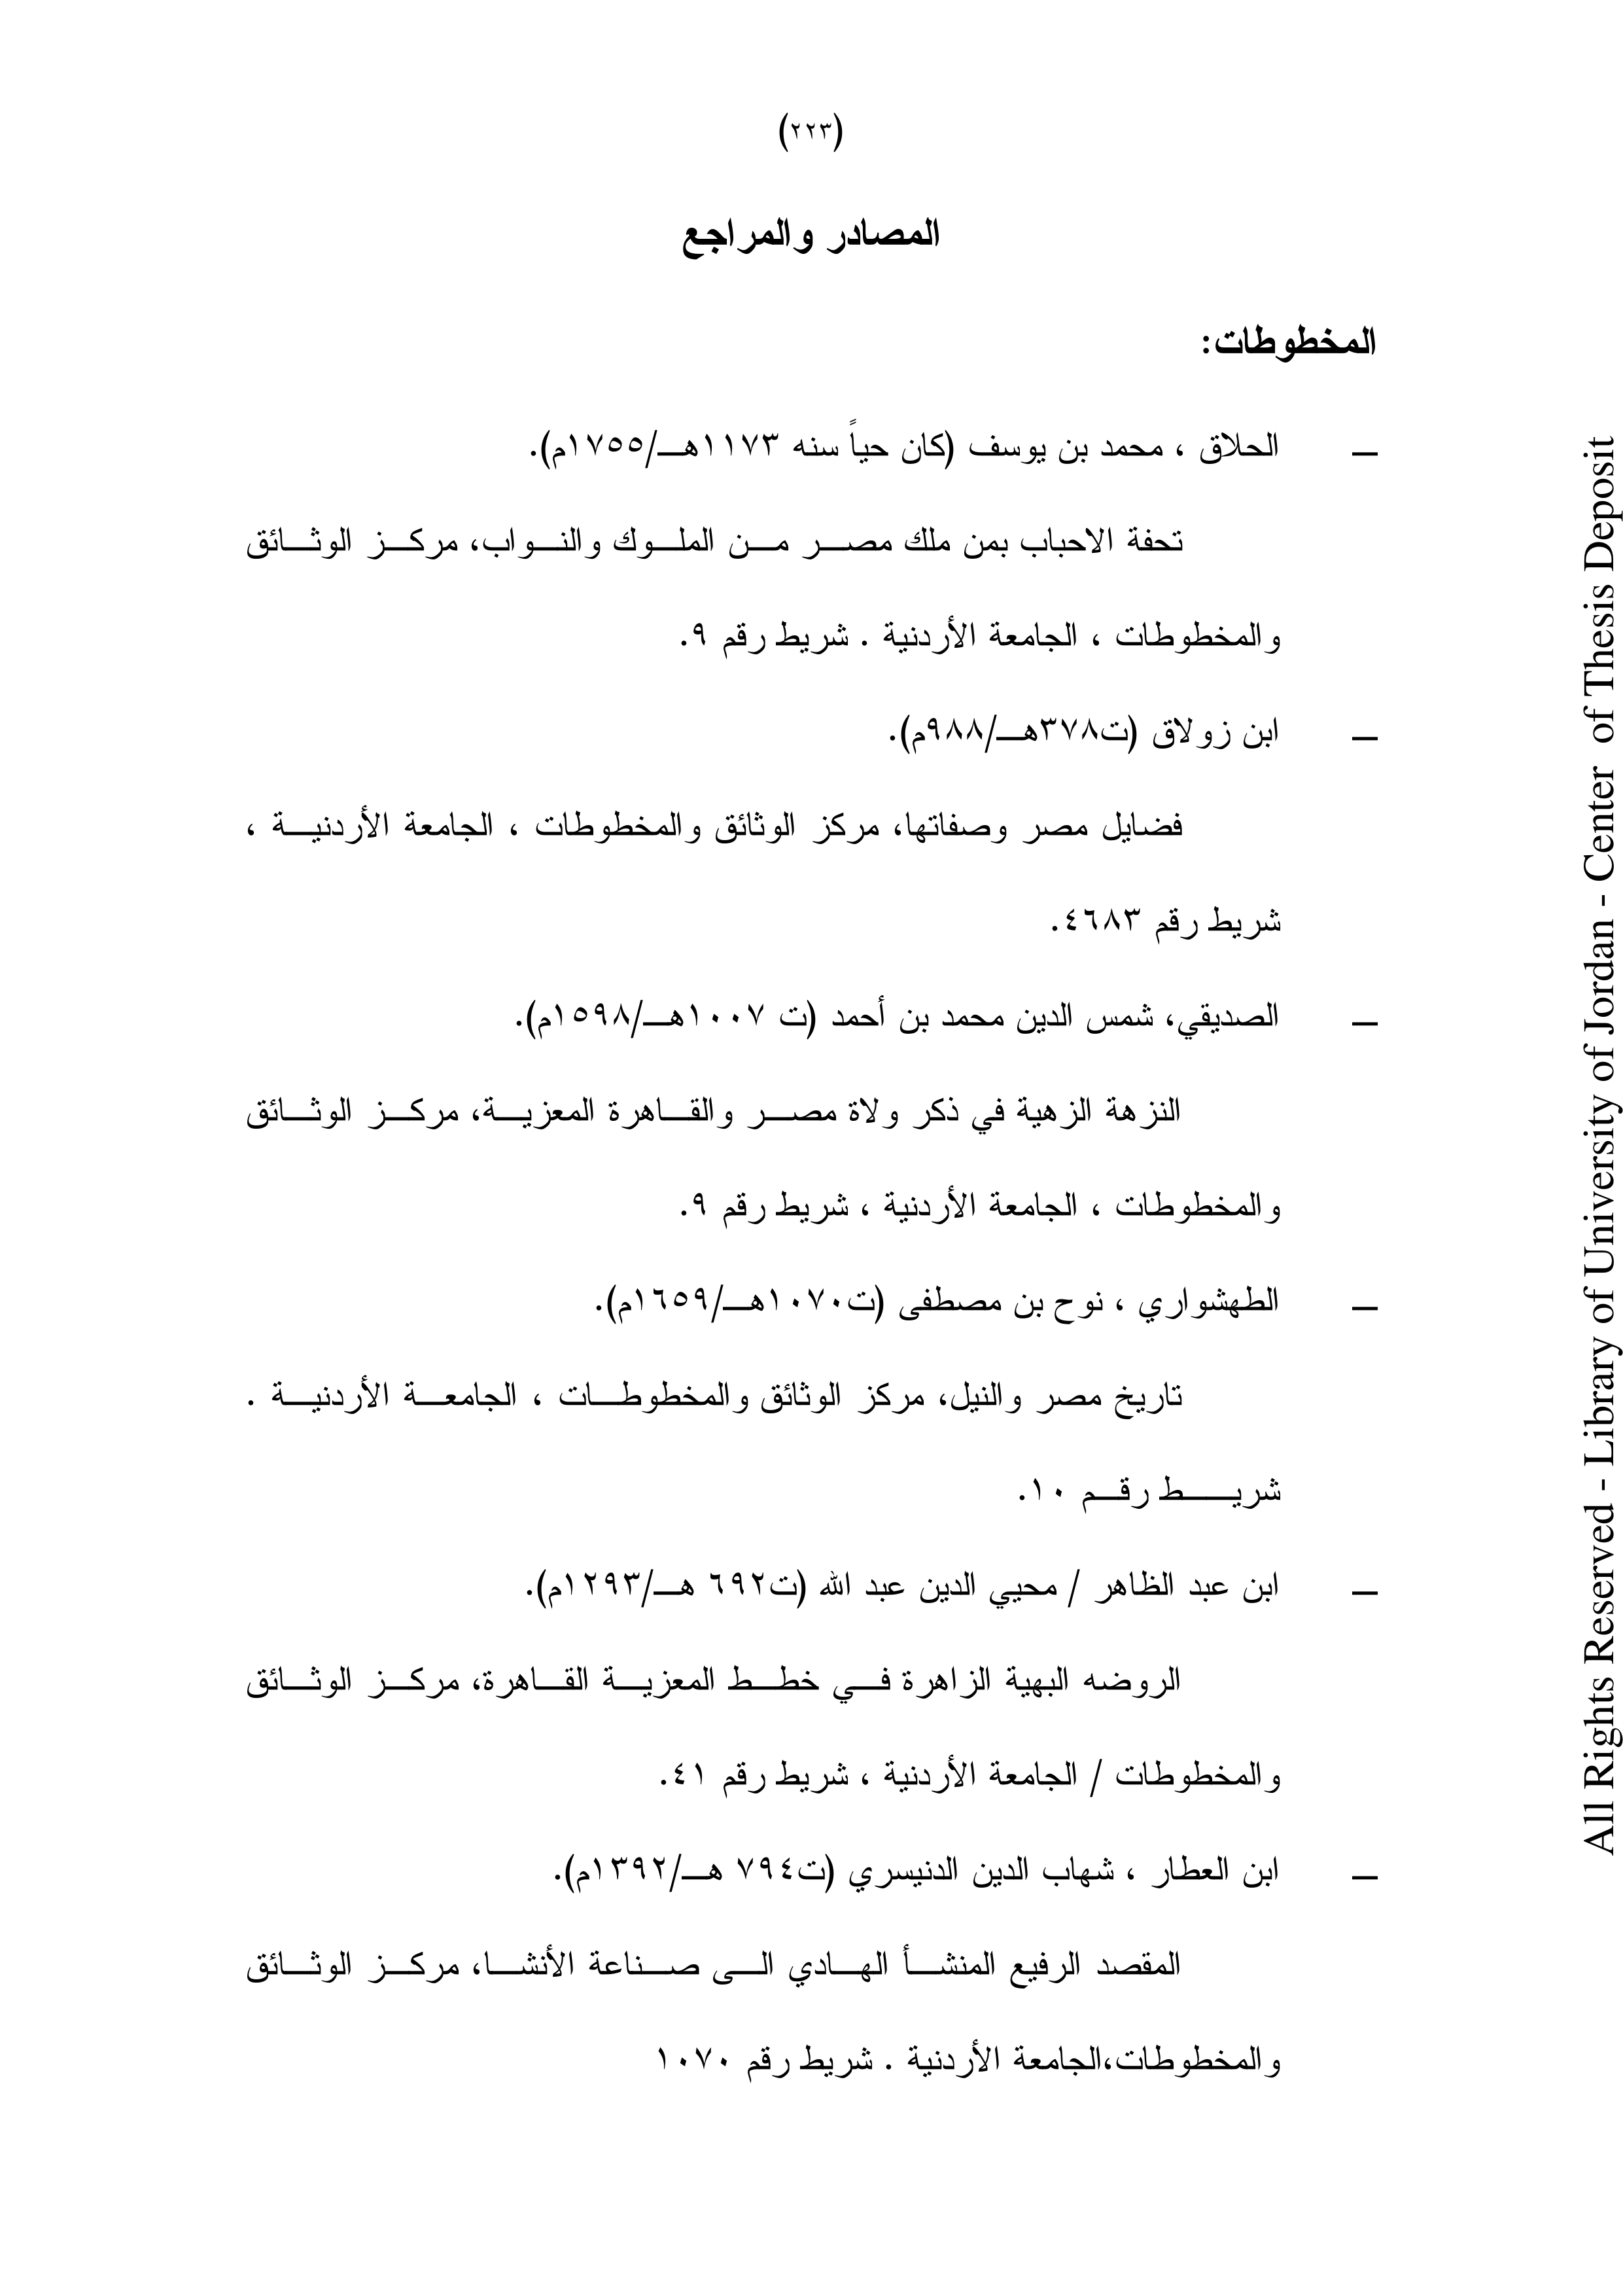 (٢٢٣)
المصادر والمراجع
المخطوطات:
ـ الحلاق ، محمد بن يوسف (كان حياً سنه ١١٧٣هـ/١٧٥٥م).
تحفة الاحباب بمن ملك مصر من الملوك والنواب، مركز الوثائق
والمخطوطات ، الجامعة الأردنية . شريط رقم ٩.
ـ ابن زولاق (ت٣٧٨هـ/٩٨٨م).
فضايل مصر وصفاتها، مركز الوثائق والمخطوطات ، الجامعة الأردنية ،
شريط رقم ٤٦٨٣.
ـ الصديقي، شمس الدين محمد بن أحمد (ت ١٠٠٧هـ/١٥٩٨م).
النزهة الزهية في ذكر ولاة مصر والقاهرة المعزية، مركز الوثائق
والمخطوطات ، الجامعة الأردنية ، شريط رقم ٩.
ـ الطهشواري ، نوح بن مصطفى (ت١٠٧٠هـ/١٦٥٩م).
تاريخ مصر والنيل، مركز الوثائق والمخطوطات ، الجامعة الأردنية .
شريط رقم ١٠.
ـ ابن عبد الظاهر / محيي الدين عبد الله (ت٦٩٢ هـ/١٢٩٣م).
الروضه البهية الزاهرة في خطط المعزية القاهرة، مركز الوثائق
والمخطوطات / الجامعة الأردنية ، شريط رقم ٤١.
ـ ابن العطار ، شهاب الدين الدنيسري (ت٧٩٤ هـ/١٣٩٢م).
المقصد الرفيع المنشأ الهادي الى صناعة الأنشا، مركز الوثائق
والمخطوطات،الجامعة الأردنية . شريط رقم ١٠٧٠
All Rights Reserved - Library of University of Jordan - Center of Thesis Deposit